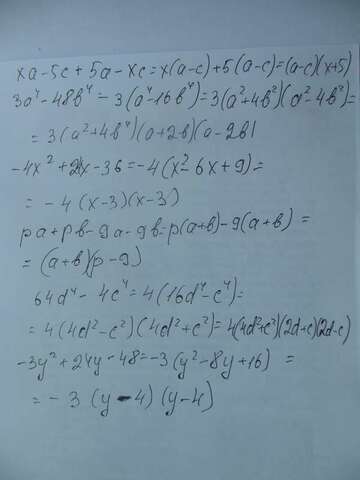 xa-5c+5a-xc=x(a-c)+5(a-c)=(a-c)(x+5)
3a⁴-48b⁴-3(a⁴-16b⁴)=3(a²+4b²)(a²-4b²)=
=3(a²+4b⁴)(a+2b)(a-2b)
-4x²+24x-36=-4(x²-6x+9)=
=-4(x-3)(x-3)
pa+pb-9a-9b=p(a+b)-9(a+b)=
=(a+b)(p-9)
64d⁴-4c⁴=4(16d⁴-c⁴)=
=4(4d²-c²)(4d²+c²)=4(4d²+c²)(2d+c)(2d-c)
-3y²+24y-48=-3(y²-8y+16)=
=-3(y-4)(y-4)